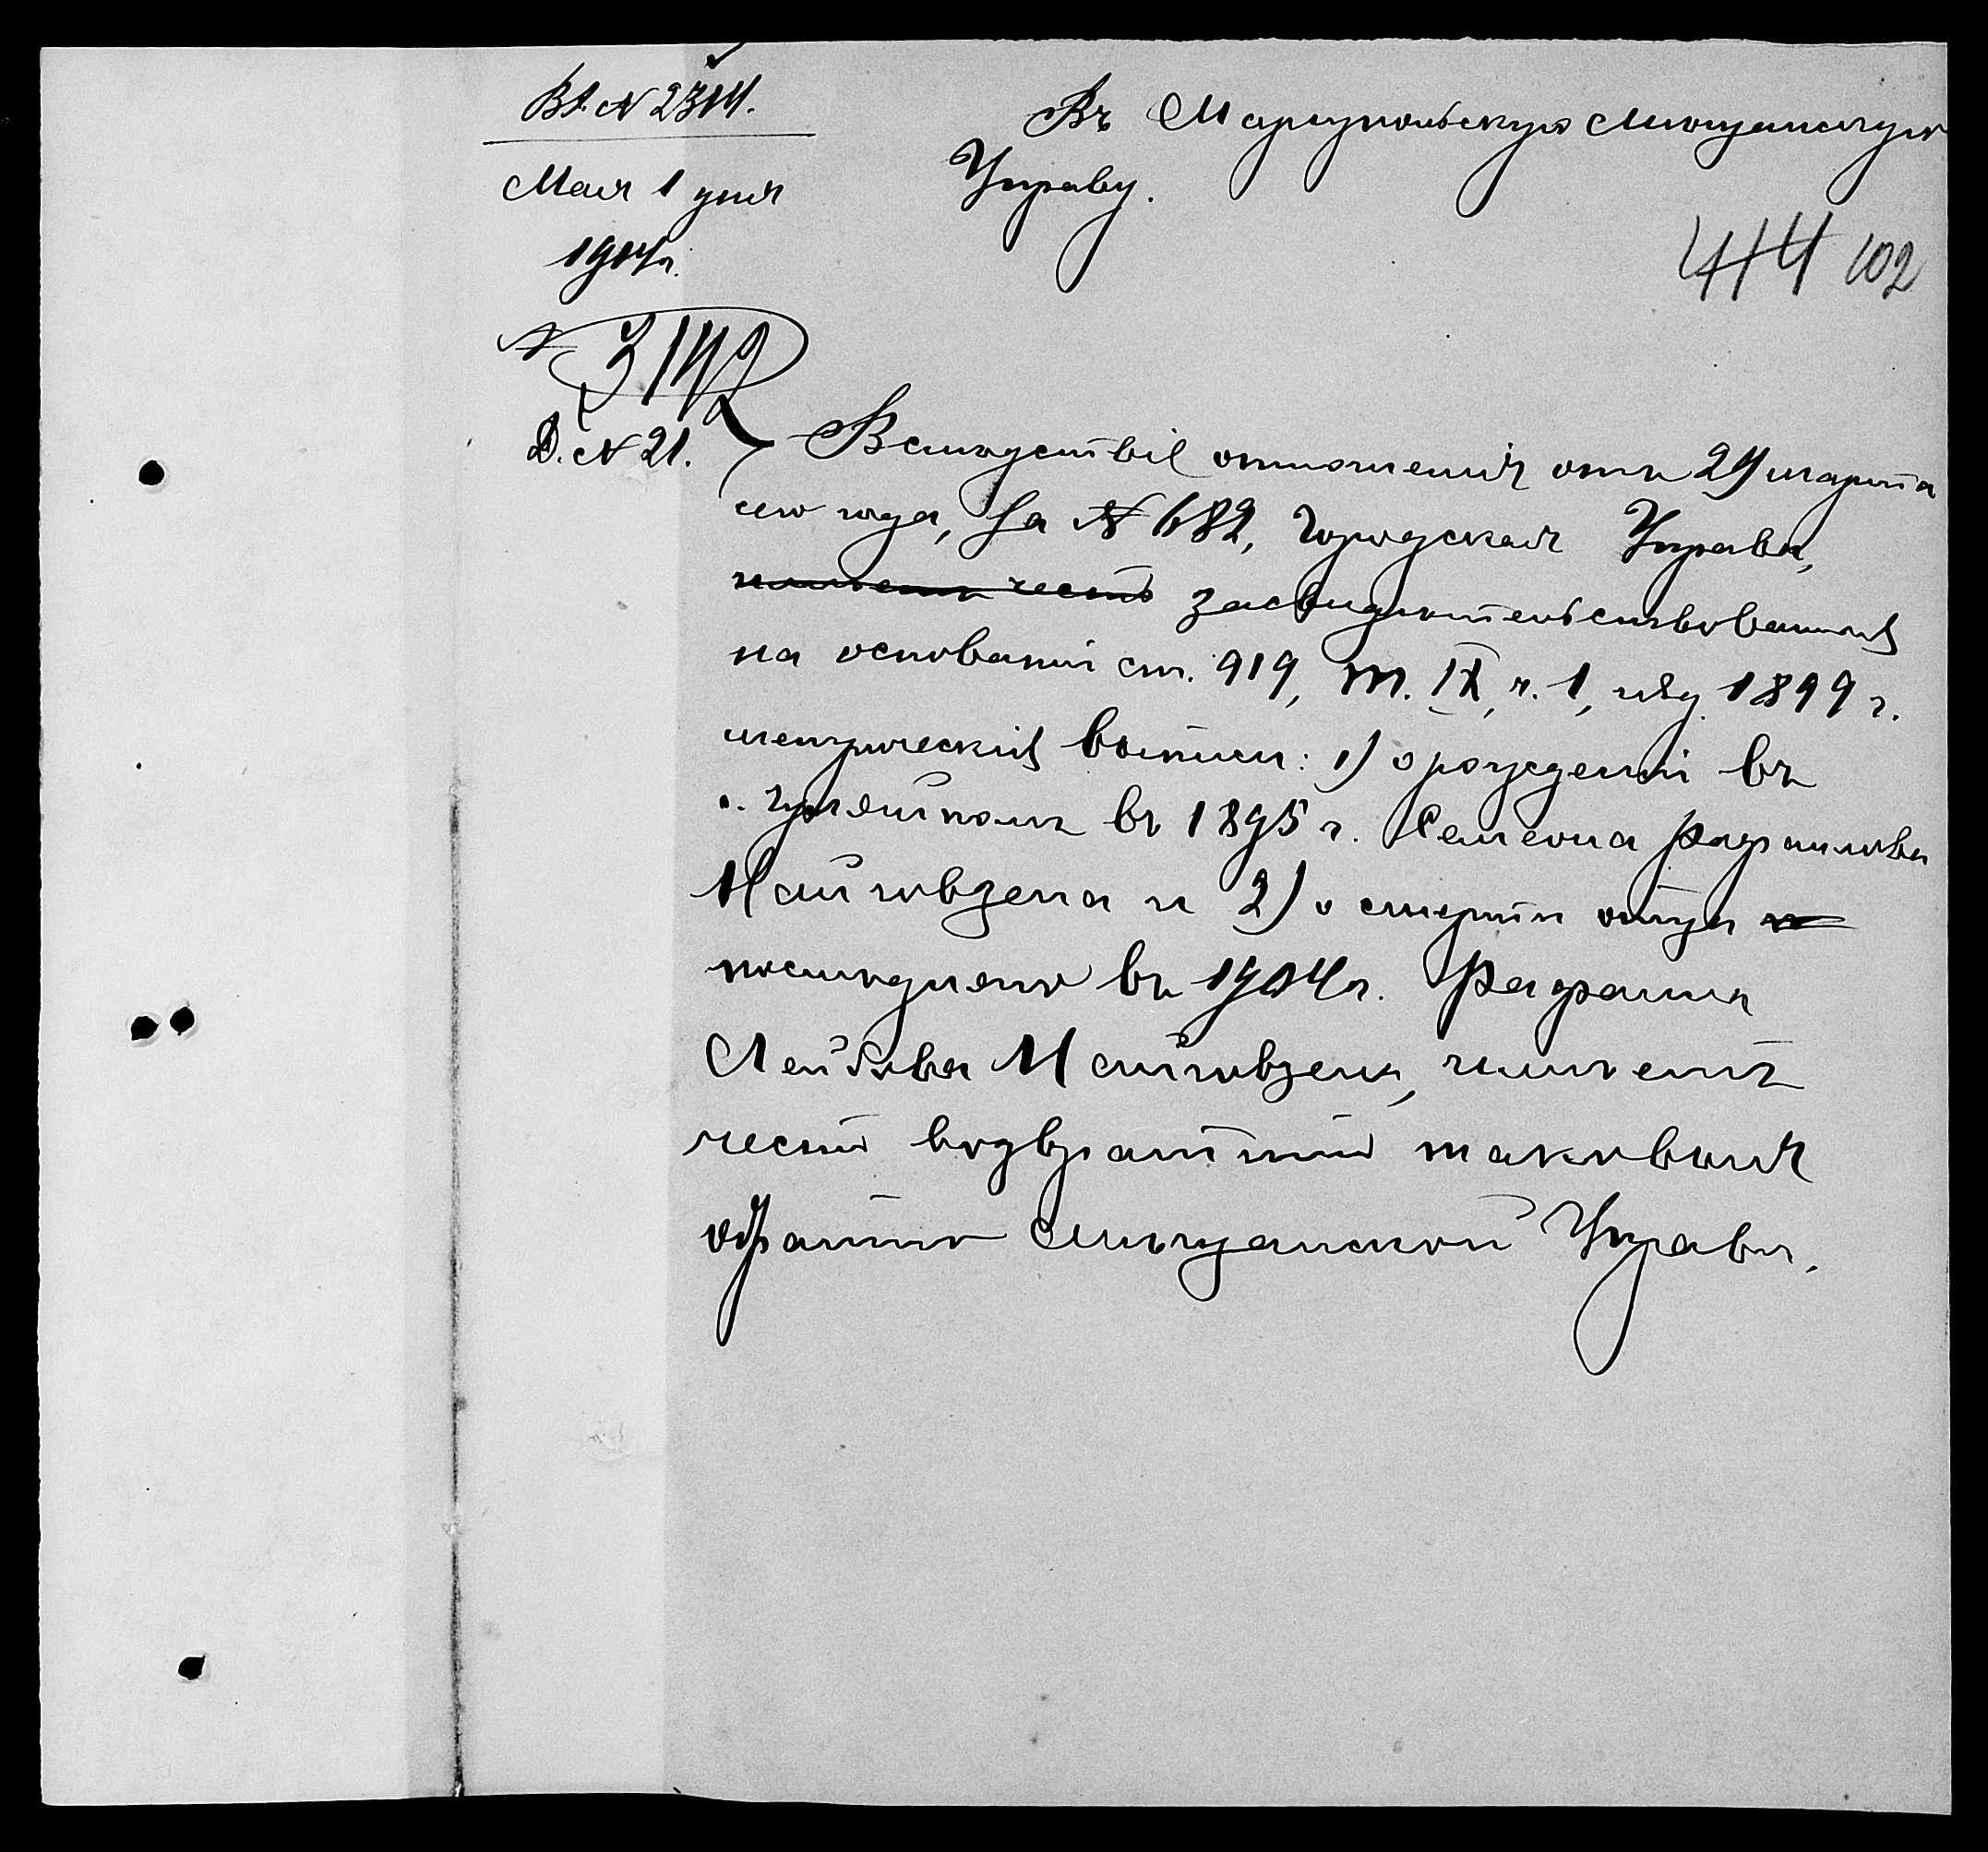 Вх. № 2314.
Мая 1 дня
1914 г.
№ 3142
Д. № 21.
Въ Мариупольскую Мѣщанскую
Управу.
44 102
Вслѣдствіе отношенія отъ 29 марта
сего года, за № 682, Городская Управа,
имѣетъ честь засвидѣтельствованныя
на основаніи ст. 919, т. IX, ч. 1, изд. 1899 г.
метрическія выписи: 1) о рожденіи въ
г. Гуляйполѣ въ 1895 г. Семена Рафаилова
Майговзена и 2) о смерти отца
послѣдняго въ 1904 г. Рафаила
Лейбова Майговзена, имѣетъ
честь возвратить таковыя
обратно Мѣщанской Управѣ.